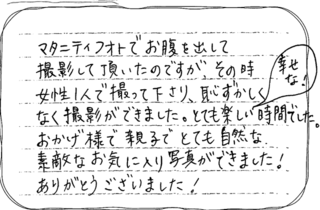 マタニティフォトでお腹を出して
撮影して頂いたのですが、その時
女性1人で撮って下さり、恥ずかしく
なく撮影ができました。とても楽しい時間でした。
幸せ
な!
おかげ様で親子でとても自然な
素敵なお気に入り写真ができました!
ありがとうございました!